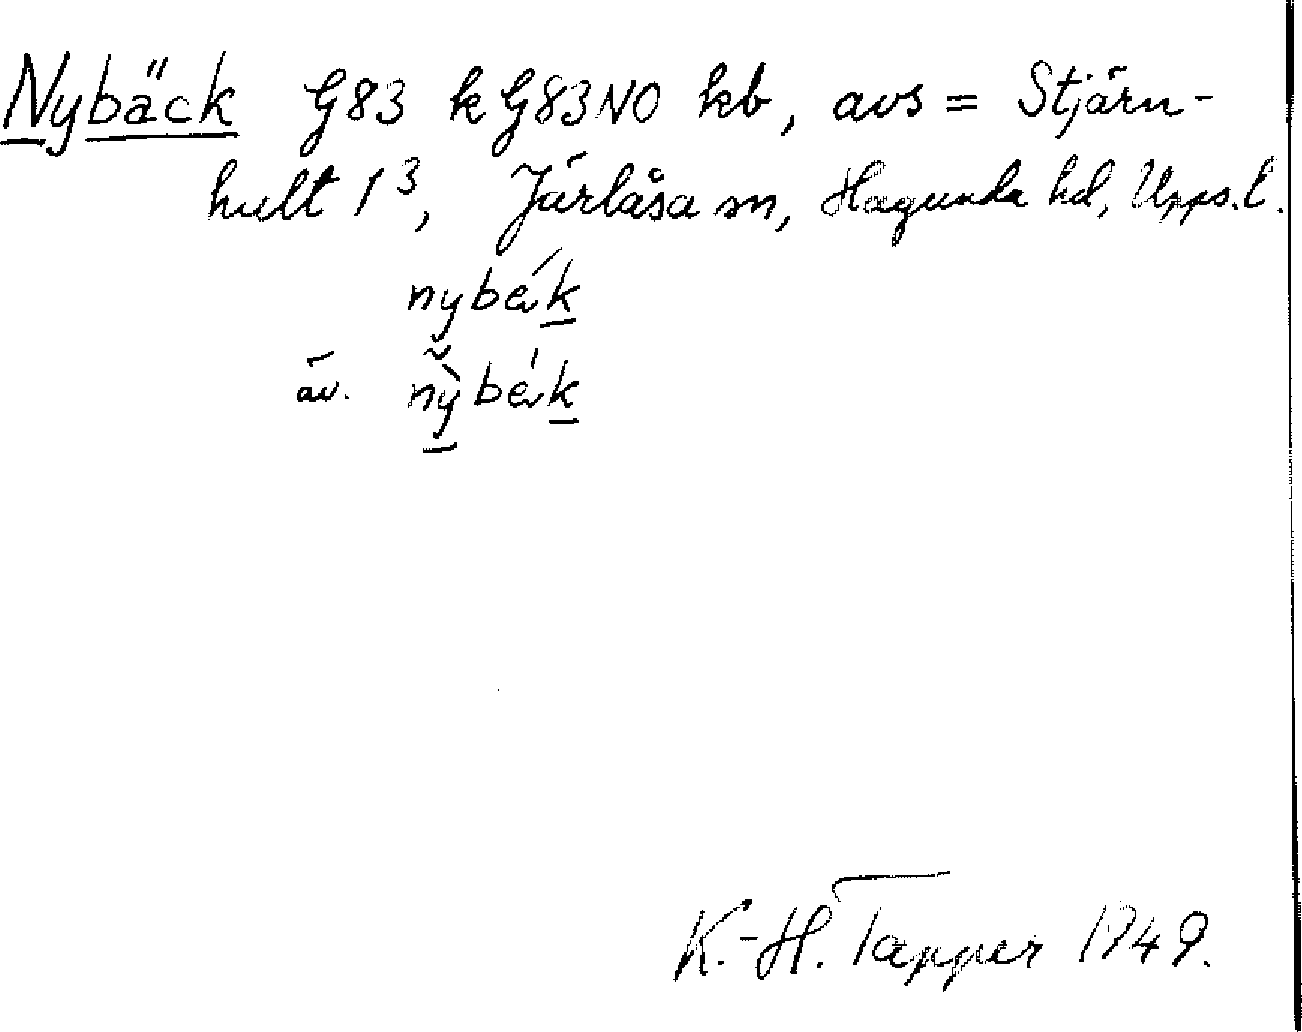 Nybäck G83 k G83NO kb, avs = Stjärn-
hult 1³, Järlåsa sn, Hagunda hd, Upps. l.
nybäk
äv. nybäk
K.-H. Tapper 1949.